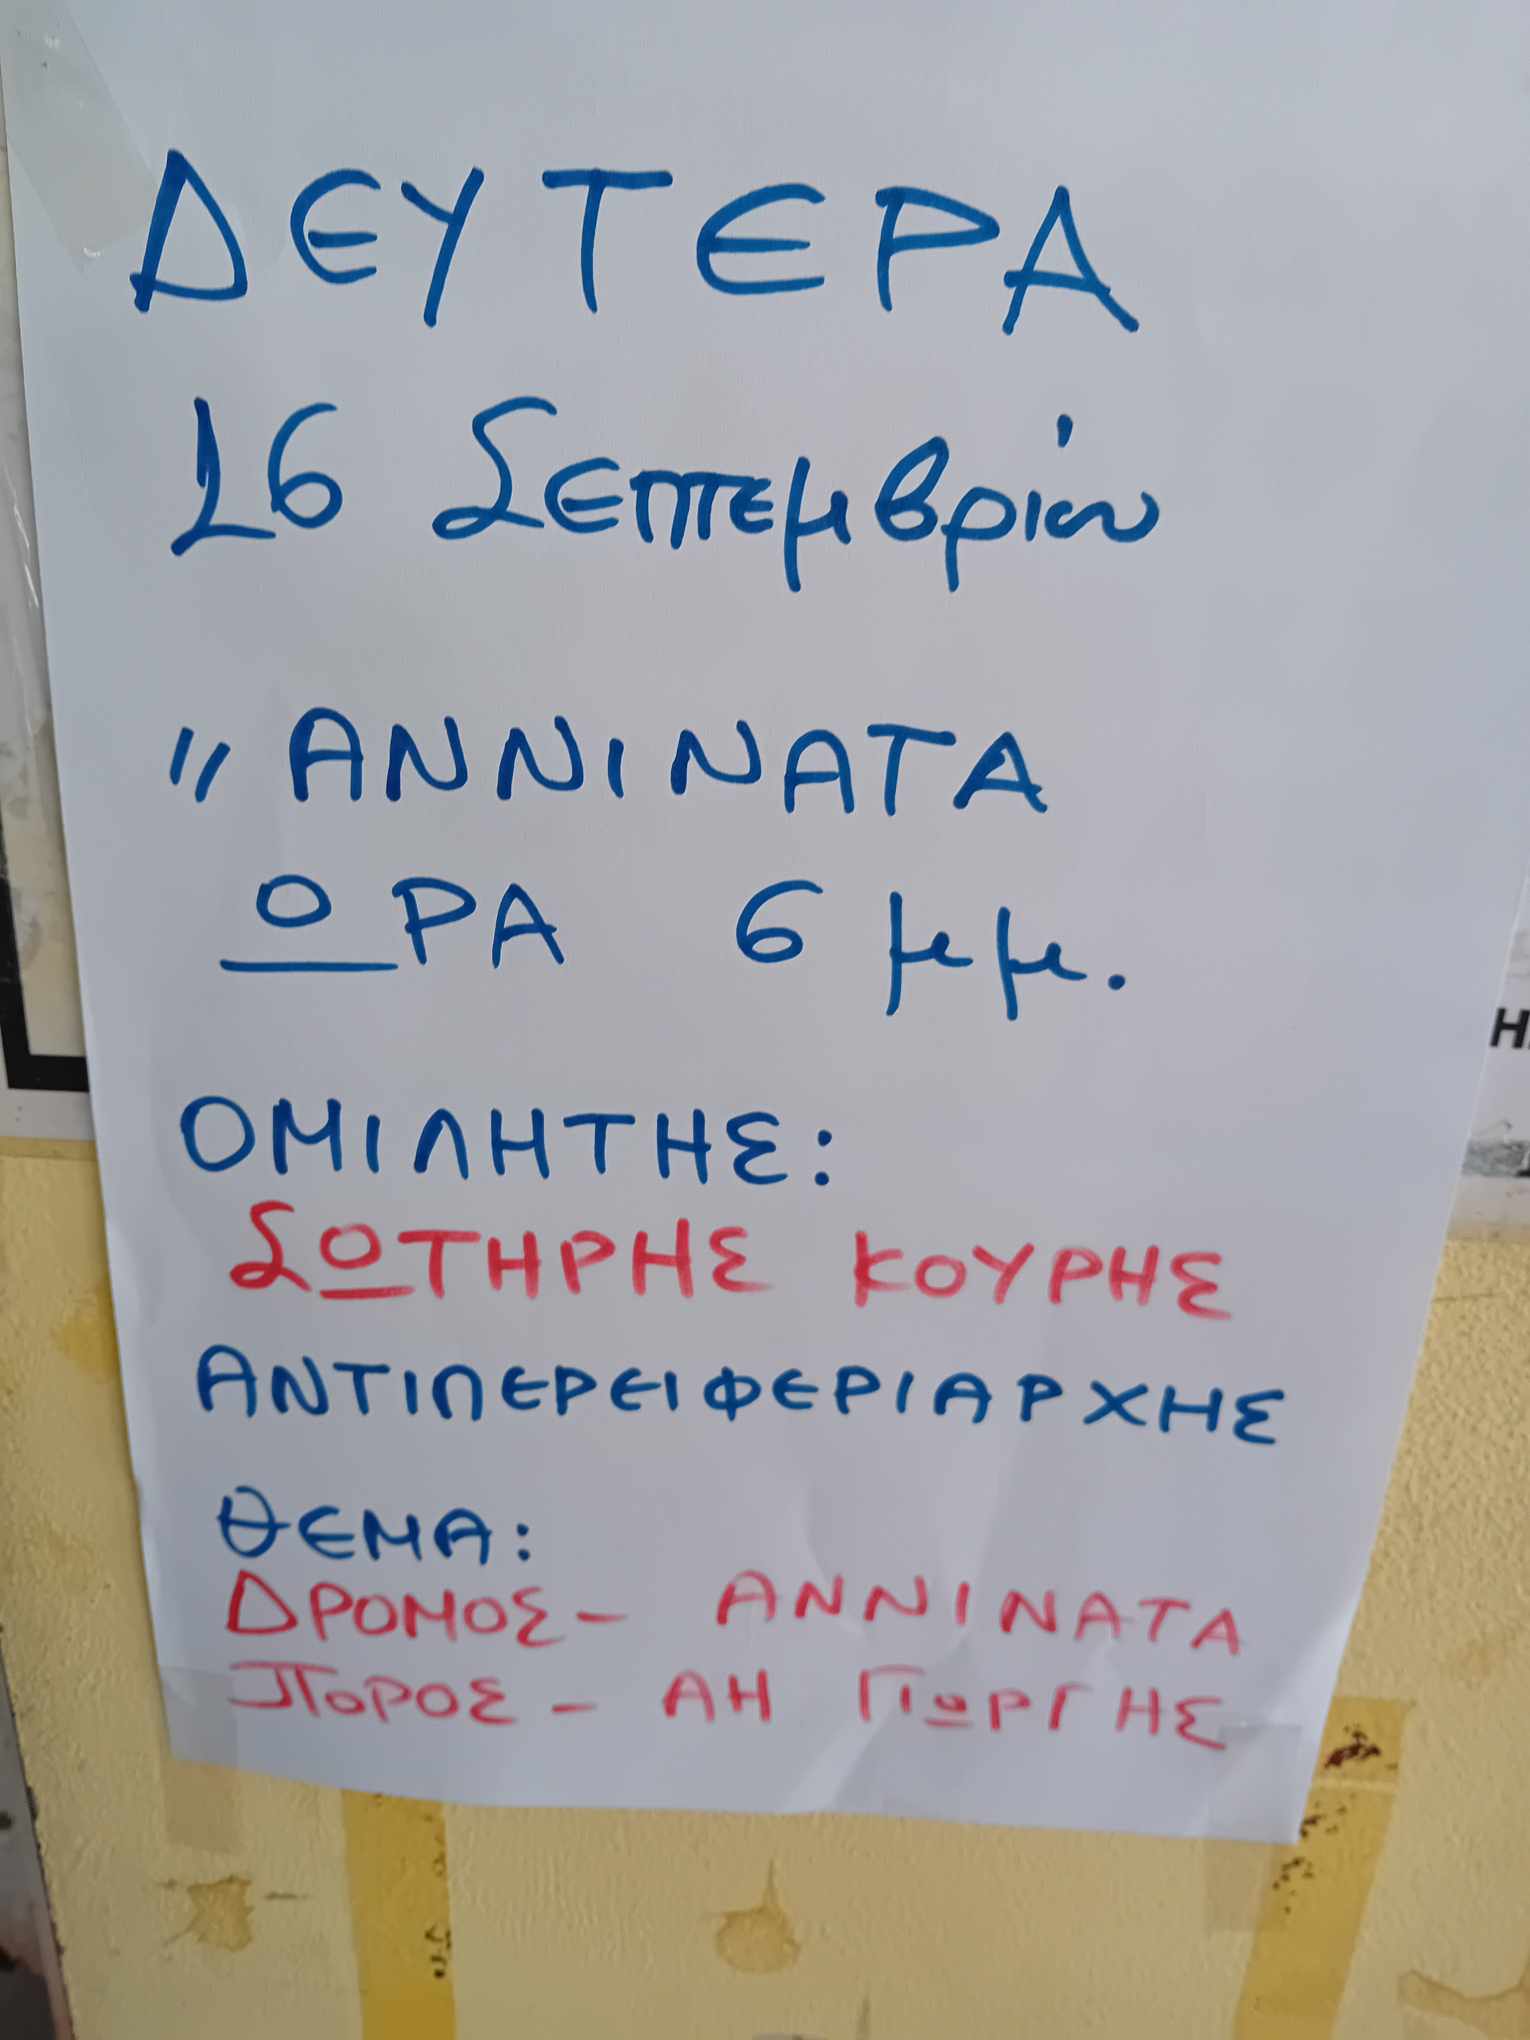 ΔΕΥΤΕΡΑ
16 Σεπτεμβρίου
" ΑΝΝΙΝΑΤΑ
ΩΡΑ 6 μμ.
ΟΜΙΛΗΤΗΣ:
ΣΩΤΗΡΗΣ ΚΟΥΡΗΣ
ΑΝΤΙΠΕΡΕΙΦΕΡΙΑΡΧΗΣ
ΘΕΜΑ:
ΔΡΟΜΟΣ - ΑΝΝΙΝΑΤΑ
ΠΟΡΟΣ - ΑΗ ΓΙΩΡΓΗΣ